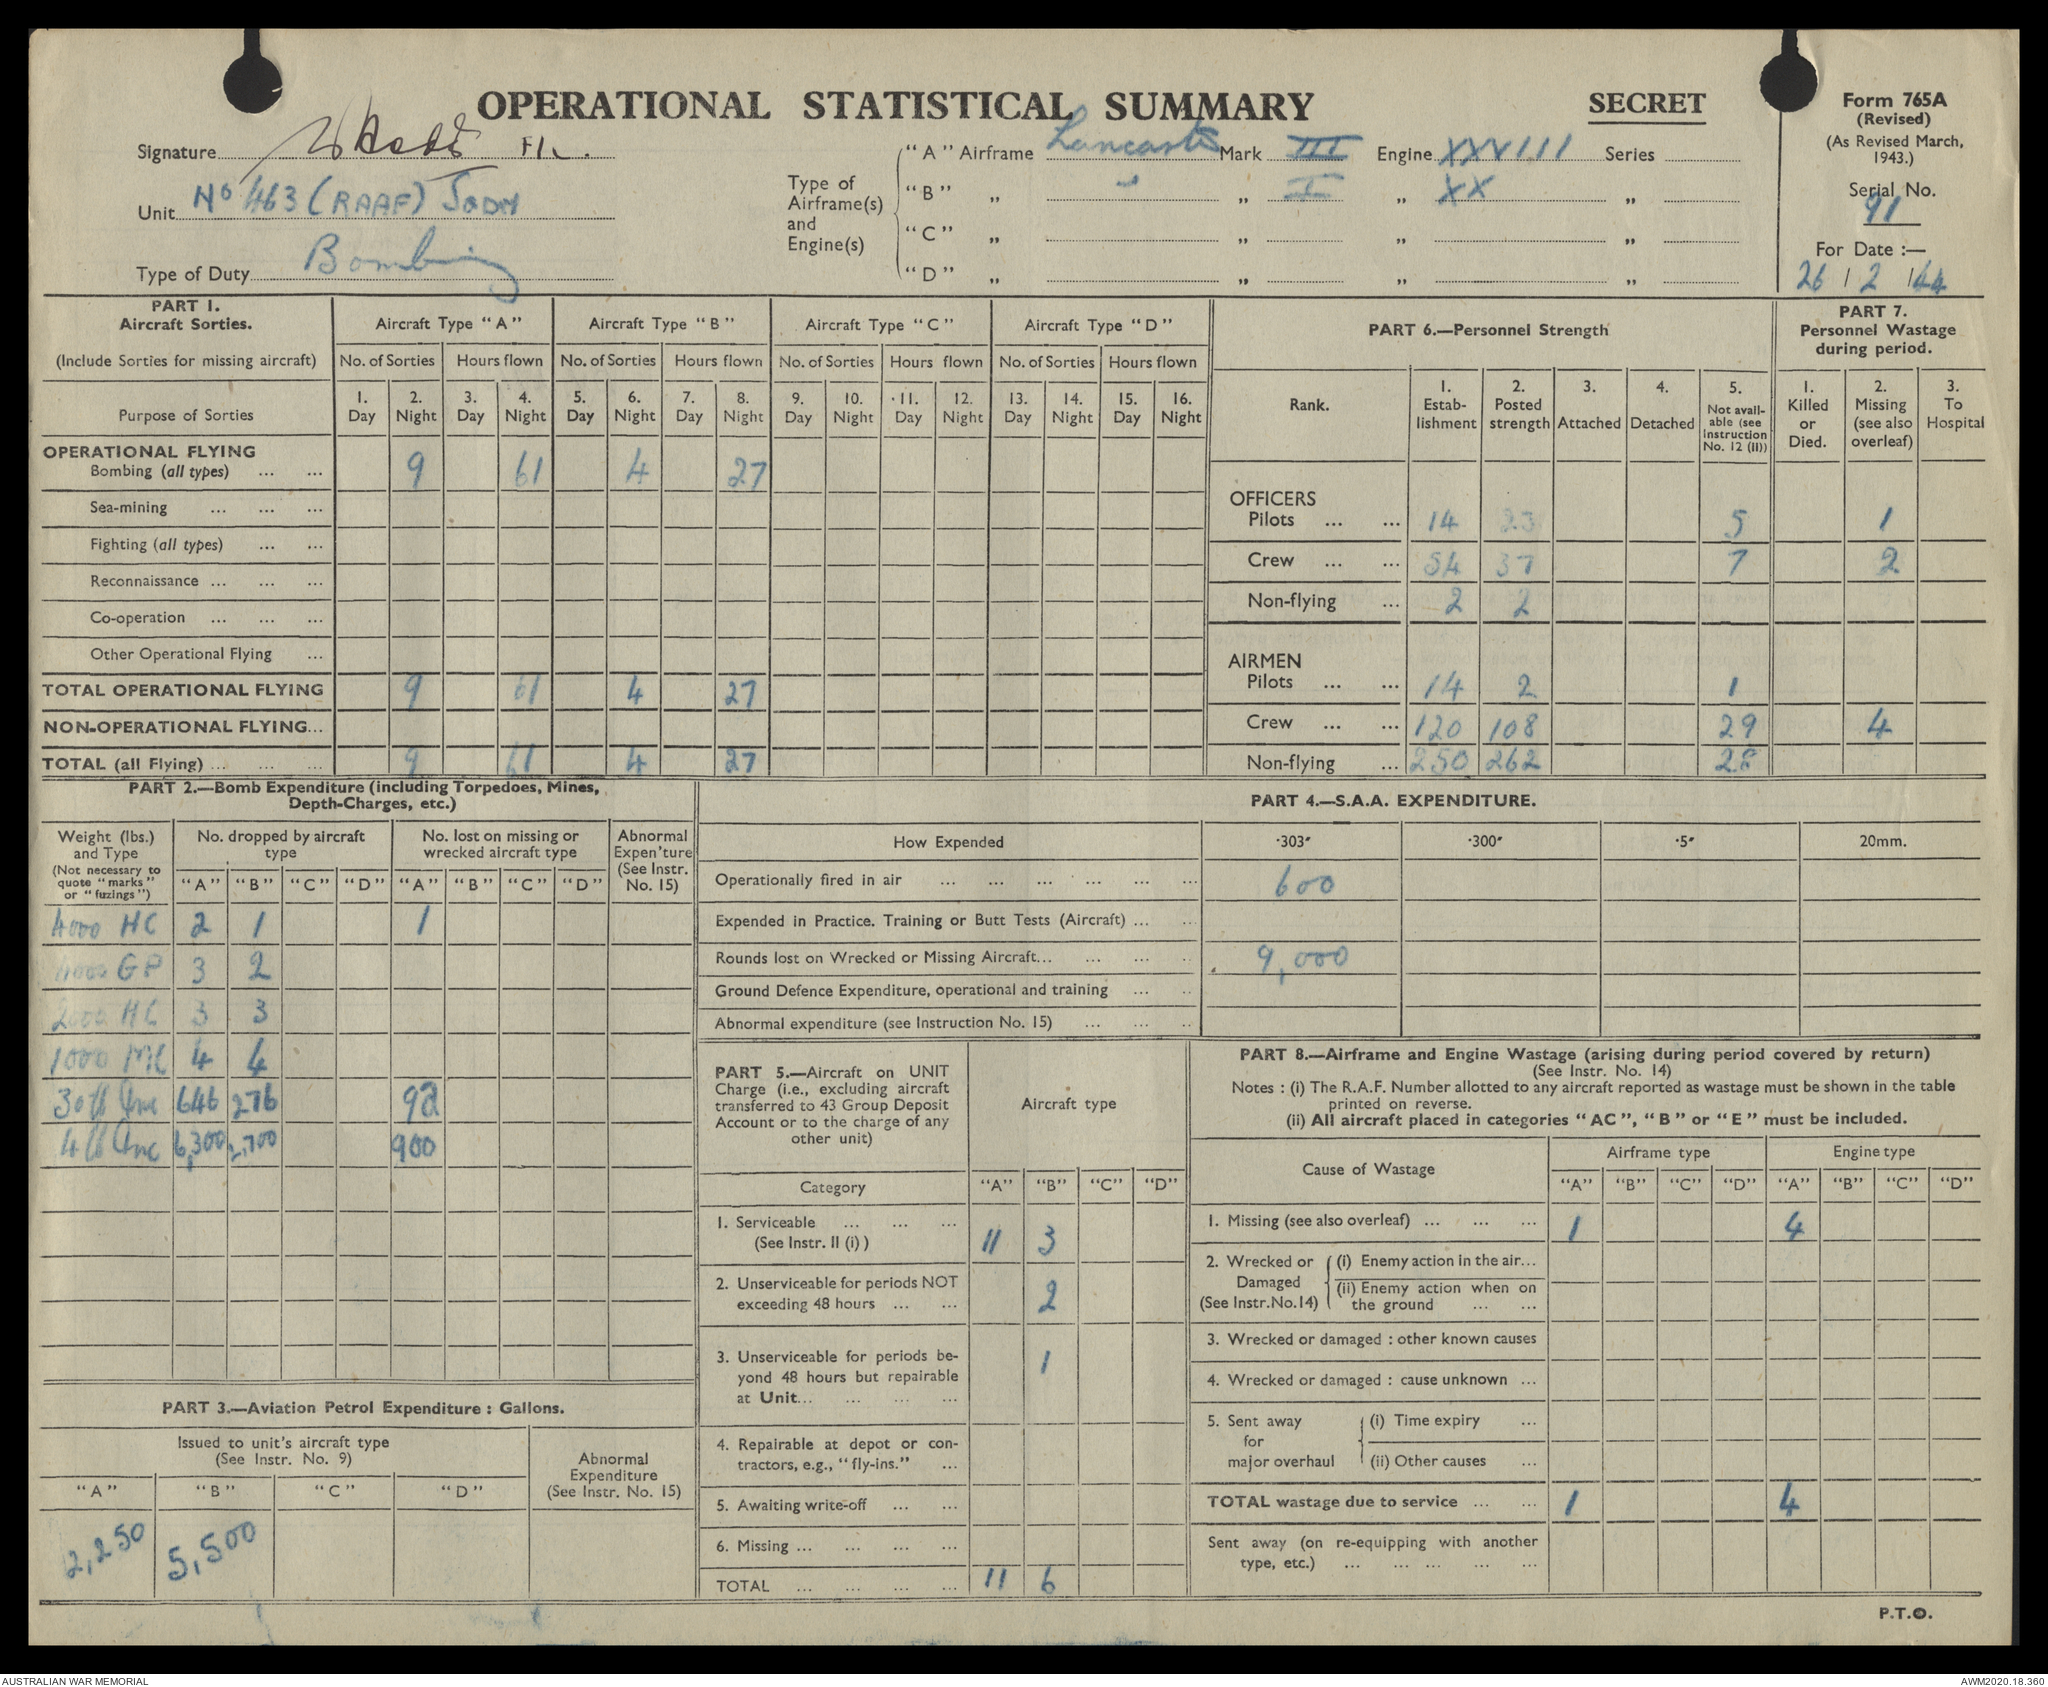 OPERATIONAL STATISTICAL SUMMARY
SECRET
Form 765A
(Revised)
(As Revised March, 1943.)
Serial No.
91
For Date :—
26 / 2 / 44
Signature
Unit No 463 (RAAF) Sqdn
Type of Duty Bombing
Type of Airframe(s) and Engine(s)
"A" Airframe Lancaster Mark III Engine XXVIII Series
"B" „ " „ I „ XX „
"C" „ „ „ „
"D" „ „ „ „
PART 1.
Aircraft Sorties.
(Include Sorties for missing aircraft)
Aircraft Type "A" Aircraft Type "B" Aircraft Type "C" Aircraft Type "D"
No. of Sorties Hours flown No. of Sorties Hours flown No. of Sorties Hours flown No. of Sorties Hours flown
Purpose of Sorties
1. Day 2. Night 3. Day 4. Night 5. Day 6. Night 7. Day 8. Night 9. Day 10. Night 11. Day 12. Night 13. Day 14. Night 15. Day 16. Night
OPERATIONAL FLYING
Bombing (all types) ... ... 9 61 4 27
Sea-mining ... ... ...
Fighting (all types) ... ...
Reconnaissance ... ... ...
Co-operation ... ... ...
Other Operational Flying ...
TOTAL OPERATIONAL FLYING 9 61 4 27
NON-OPERATIONAL FLYING...
TOTAL (all Flying) ... ... ... 9 61 4 27
PART 6.—Personnel Strength
Rank.
1. Estab-lishment
2. Posted strength
3. Attached
4. Detached
5. Not available (see Instruction No. 12 (II))
PART 7.
Personnel Wastage during period.
1. Killed or Died.
2. Missing (see also overleaf)
3. To Hospital
OFFICERS
Pilots ... ... 14 23 5 1
Crew ... ... 54 37 7 2
Non-flying ... 2 2
AIRMEN
Pilots ... ... 14 2 1
Crew ... ... 120 108 29 4
Non-flying ... 250 262 28
PART 2.—Bomb Expenditure (including Torpedoes, Mines,
Depth-Charges, etc.)
Weight (lbs.) and Type
(Not necessary to quote "marks" or "fuzings")
No. dropped by aircraft type
No. lost on missing or wrecked aircraft type
Abnormal Expen'ture (See Instr. No. 15)
"A" "B" "C" "D" "A" "B" "C" "D"
4000 HC 2 1 1
4000 GP 3 2
2000 HC 3 3
1000 MC 4 4
30 lb Inc 646 276 92
4 lb Inc 6,300 2,700 900
PART 3.—Aviation Petrol Expenditure : Gallons.
Issued to unit's aircraft type
(See Instr. No. 9)
Abnormal Expenditure (See Instr. No. 15)
"A" "B" "C" "D"
2,250 5,500
PART 4.—S.A.A. EXPENDITURE.
How Expended ·303" ·300" ·5" 20mm.
Operationally fired in air ... ... ... ... ... ... 600
Expended in Practice. Training or Butt Tests (Aircraft) ... ..
Rounds lost on Wrecked or Missing Aircraft... ... ... .. 9,000
Ground Defence Expenditure, operational and training ... ..
Abnormal expenditure (see Instruction No. 15) ... ... ..
PART 5.—Aircraft on UNIT
Charge (i.e., excluding aircraft
transferred to 43 Group Deposit
Account or to the charge of any
other unit)
Aircraft type
Category "A" "B" "C" "D"
1. Serviceable ... ... ...
(See Instr. II (i) ) 11 3
2. Unserviceable for periods NOT
exceeding 48 hours ... ... 2
3. Unserviceable for periods be-
yond 48 hours but repairable
at Unit... ... ... ... 1
4. Repairable at depot or con-
tractors, e.g., "fly-ins." ...
5. Awaiting write-off ... ...
6. Missing ... ... ... ...
TOTAL ... ... ... ... 11 6
PART 8.—Airframe and Engine Wastage (arising during period covered by return)
(See Instr. No. 14)
Notes : (i) The R.A.F. Number allotted to any aircraft reported as wastage must be shown in the table
printed on reverse.
(ii) All aircraft placed in categories "AC", "B" or "E" must be included.
Cause of Wastage Airframe type Engine type
"A" "B" "C" "D" "A" "B" "C" "D"
1. Missing (see also overleaf) ... ... ... 1 4
2. Wrecked or Damaged (See Instr.No.14)
(i) Enemy action in the air...
(ii) Enemy action when on the ground ... ...
3. Wrecked or damaged : other known causes
4. Wrecked or damaged : cause unknown ...
5. Sent away for major overhaul
(i) Time expiry ...
(ii) Other causes ...
TOTAL wastage due to service ... ... 1 4
Sent away (on re-equipping with another
type, etc.) ... ... ... ... ...
P.T.O.
AUSTRALIAN WAR MEMORIAL
AWM2020.18.360